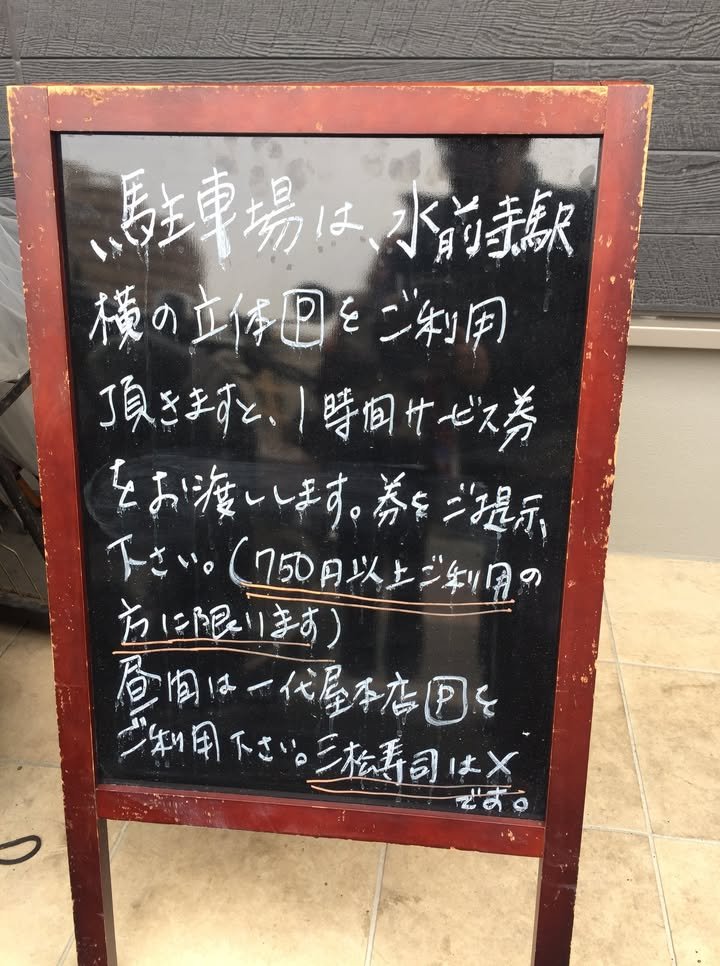 駐車場は、水前寺駅
横の立体Pをご利用
頂きますと、1時間サービス券
をお渡しします。券をご提示
下さい。(750円以上ご利用の
方に限ります)
昼間は一代屋本店Pを
ご利用下さい。三松寿司は×
です。